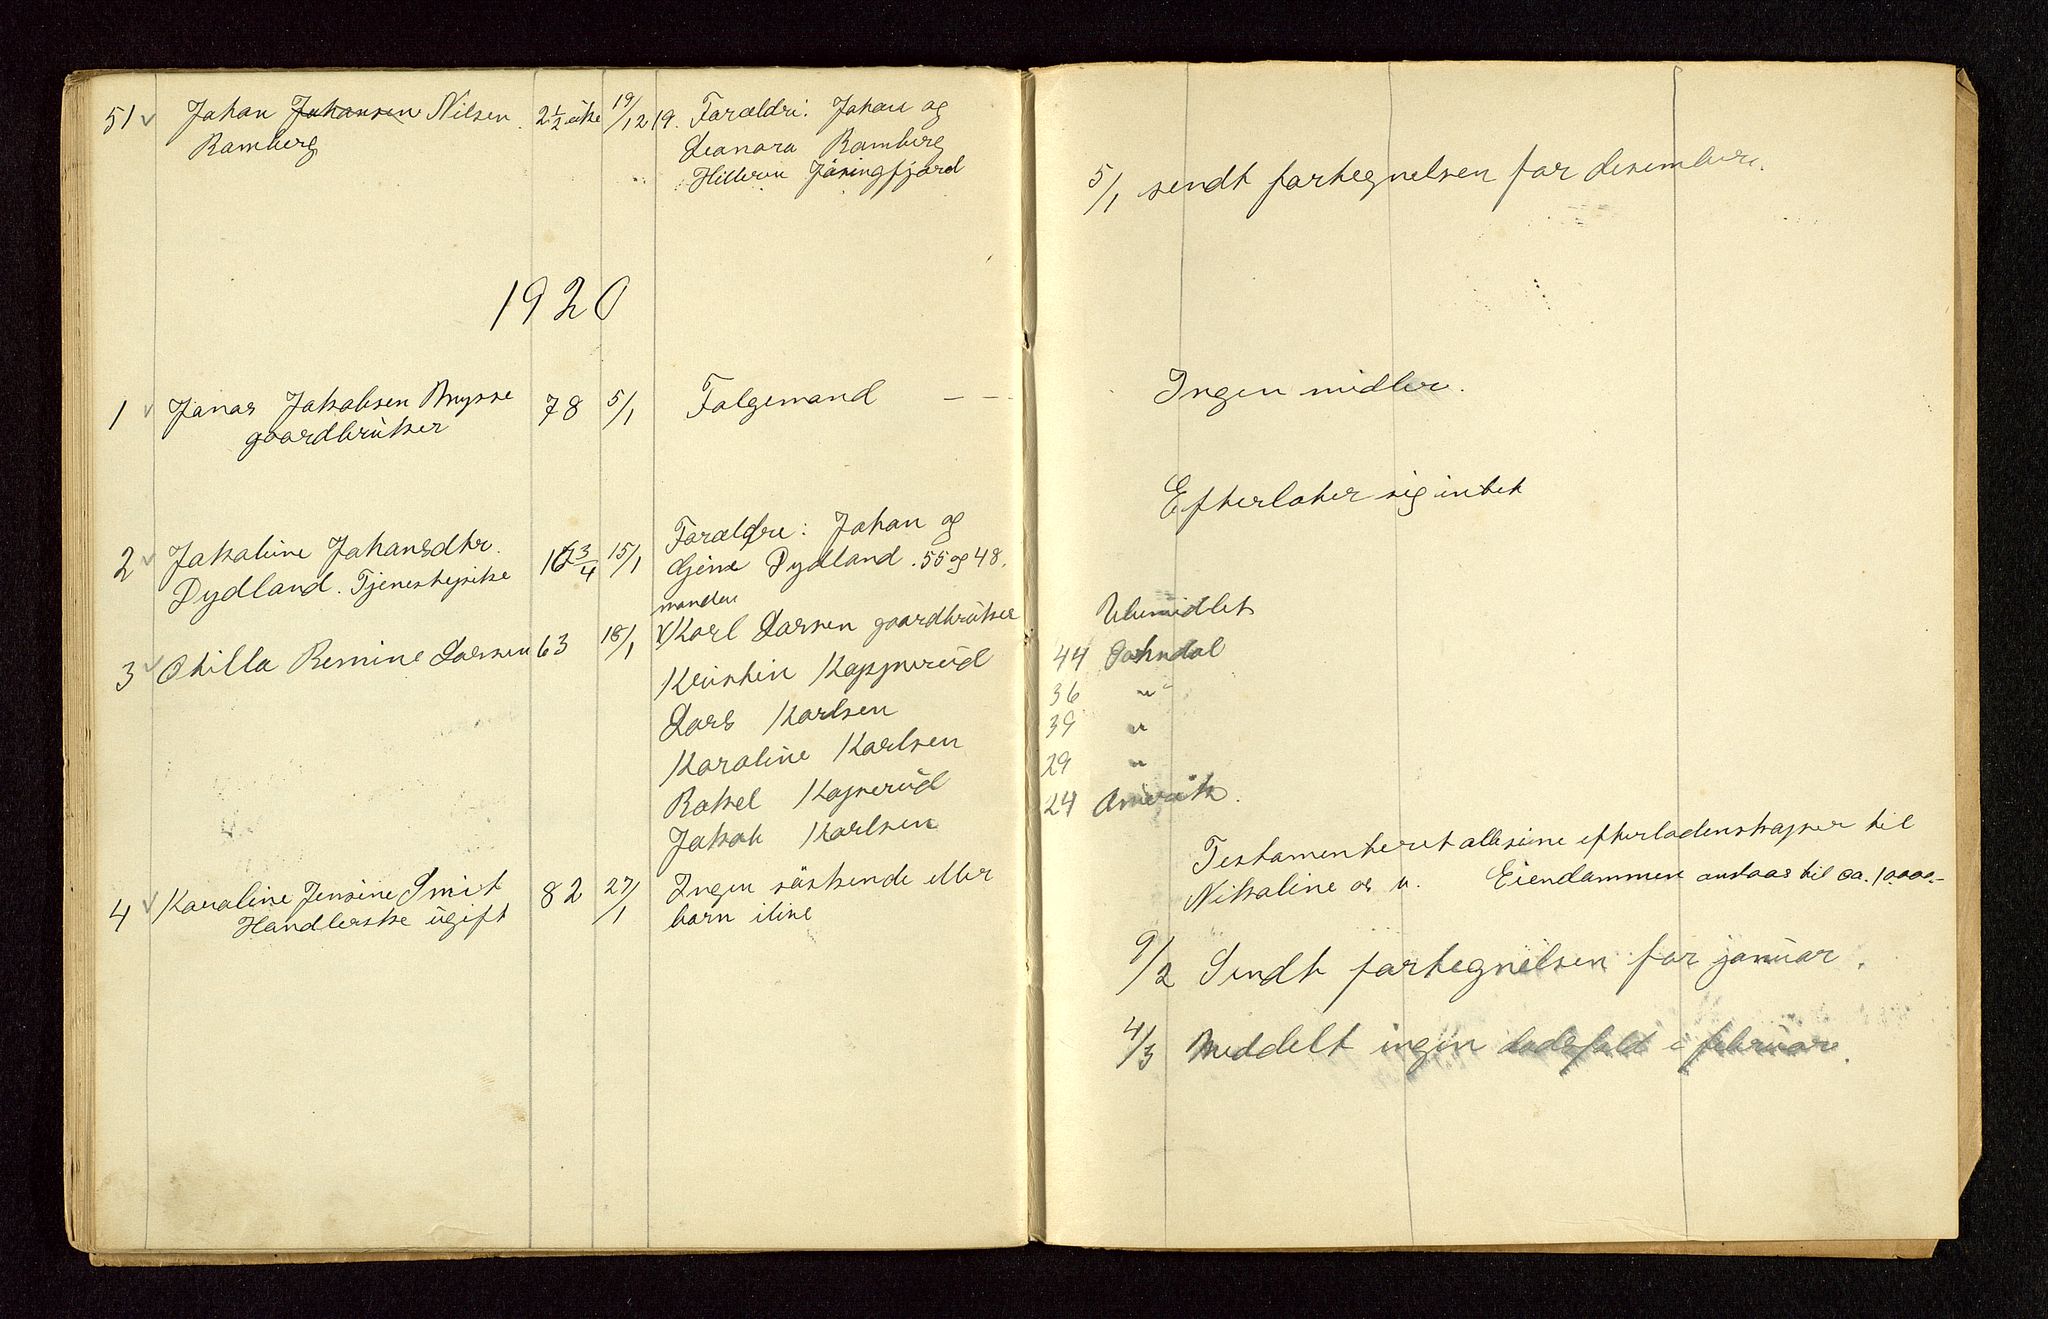 51 Johan Johansen Nilsen 2½ uke 19/12 19. Forældri: Johan og
Ramberg Leonora Ramberg
Hilleren Jøsingfjord
5/1 sendt fortegnelsen for desember.
1920
1 Jonas Jakobsen Mysse 78 5/1 Folgemand — —
gaardbruker
Ingen midler.
2 Jakobine Johansdtr. 16 3/4 15/1 Forældre: Johan og
Dydland. Tjenestepike Gjine Dydland. 55 og 48.
Efterlater sig intet
3 Otilla Bernine Larsen 63 18/1 manden
Karl Larsen gaardbruker
Kristin Kopperud
Lars Karlsen
Karoline Karlsen
Rakel Koperud
Jakob Karlsen
Ubemidlet
44 Sokndal
36 "
39 "
29 "
24 Amerika.
4 Karoline Jensine Smit 82 27/1 Ingen søskende eller
Handlerske ugift barn ilive
Testamenteret alle sine efterladenskaper til
Nikoline os u. Eiendammen anslaas til ca. 10000-
9/2 Sendt fortegnelsen for januar.
4/3 Meddelt ingen dødsfald i februar.